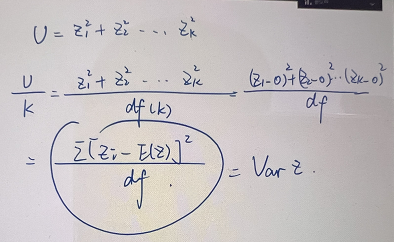 U = z₁² + z₂² ··· zₖ²
U/K = (z₁² + z₂² ··· zₖ²)/df(k) = ((z₁-0)²+(z₂-0)²··(zₖ-0)²)/df
= Σ[zᵢ - E(z)]²/df = Var z.